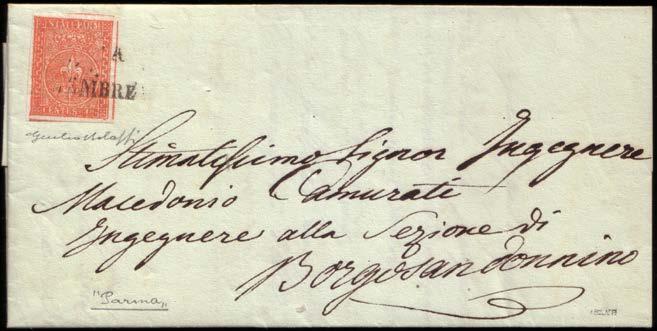 STATI PARM.
A
MBRE
CENTES. 15
Stimatissimo Signor Ingegnere
Macedonio Camurati
Ingegnere alla Sezione di
Borgosandonnino
"Parma"